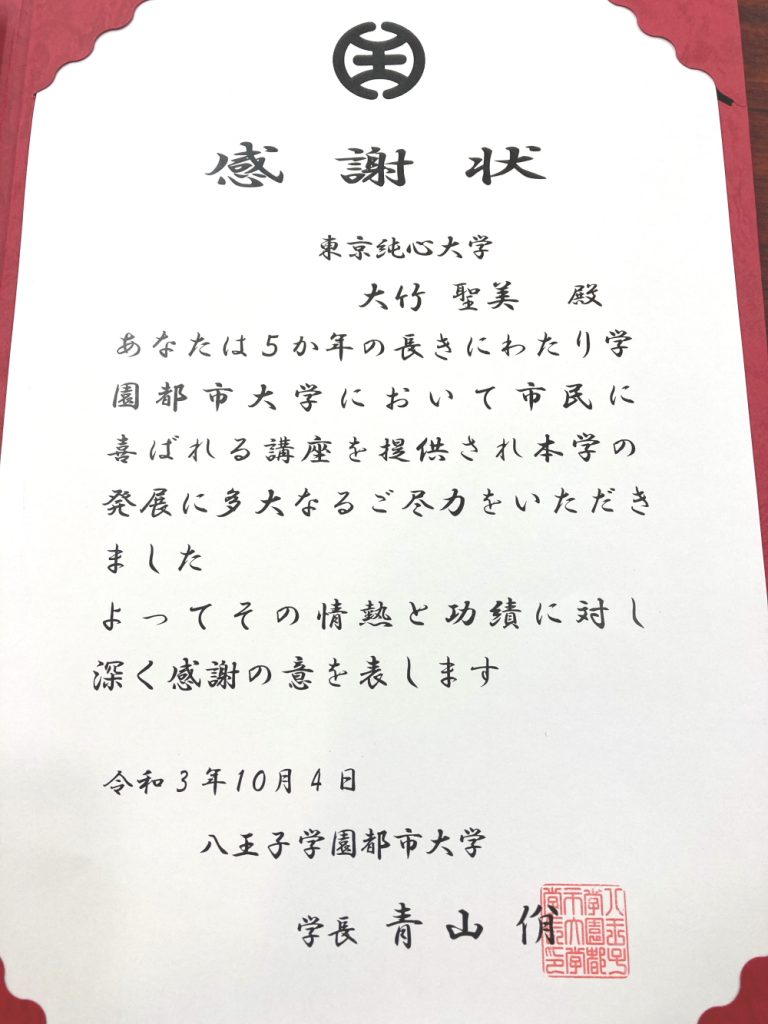 感謝状
東京純心大学
大竹 聖美 殿
あなたは5か年の長きにわたり学
園都市大学において市民に
喜ばれる講座を提供され本学の
発展に多大なるご尽力をいただき
ました
よってその情熱と功績に対し
深く感謝の意を表します
令和3年10月4日
八王子学園都市大学
学長 青山 佾
八王子
学園都
市大学
学長印